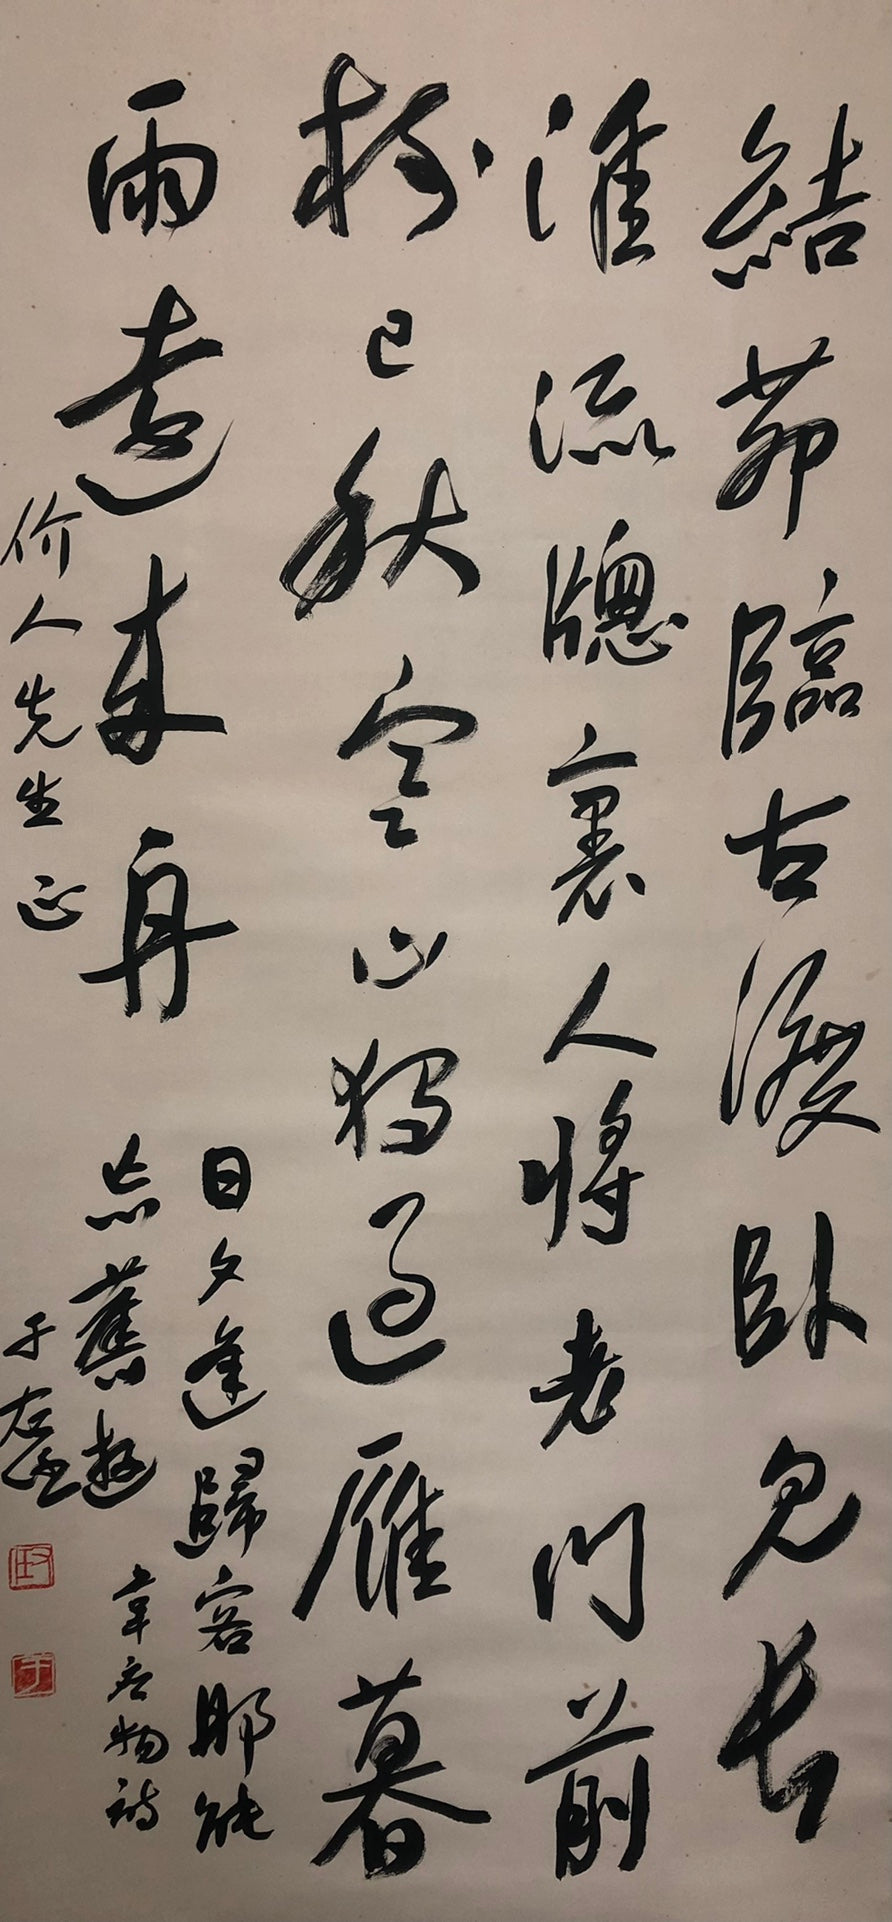 結茆臨古渡卧見長
淮流牕裏人將老門前
樹已秋寒山獨過雁暮
雨遠來舟
日夕逢歸客那能
忘舊遊
韋應物詩
价人先生正
于右任